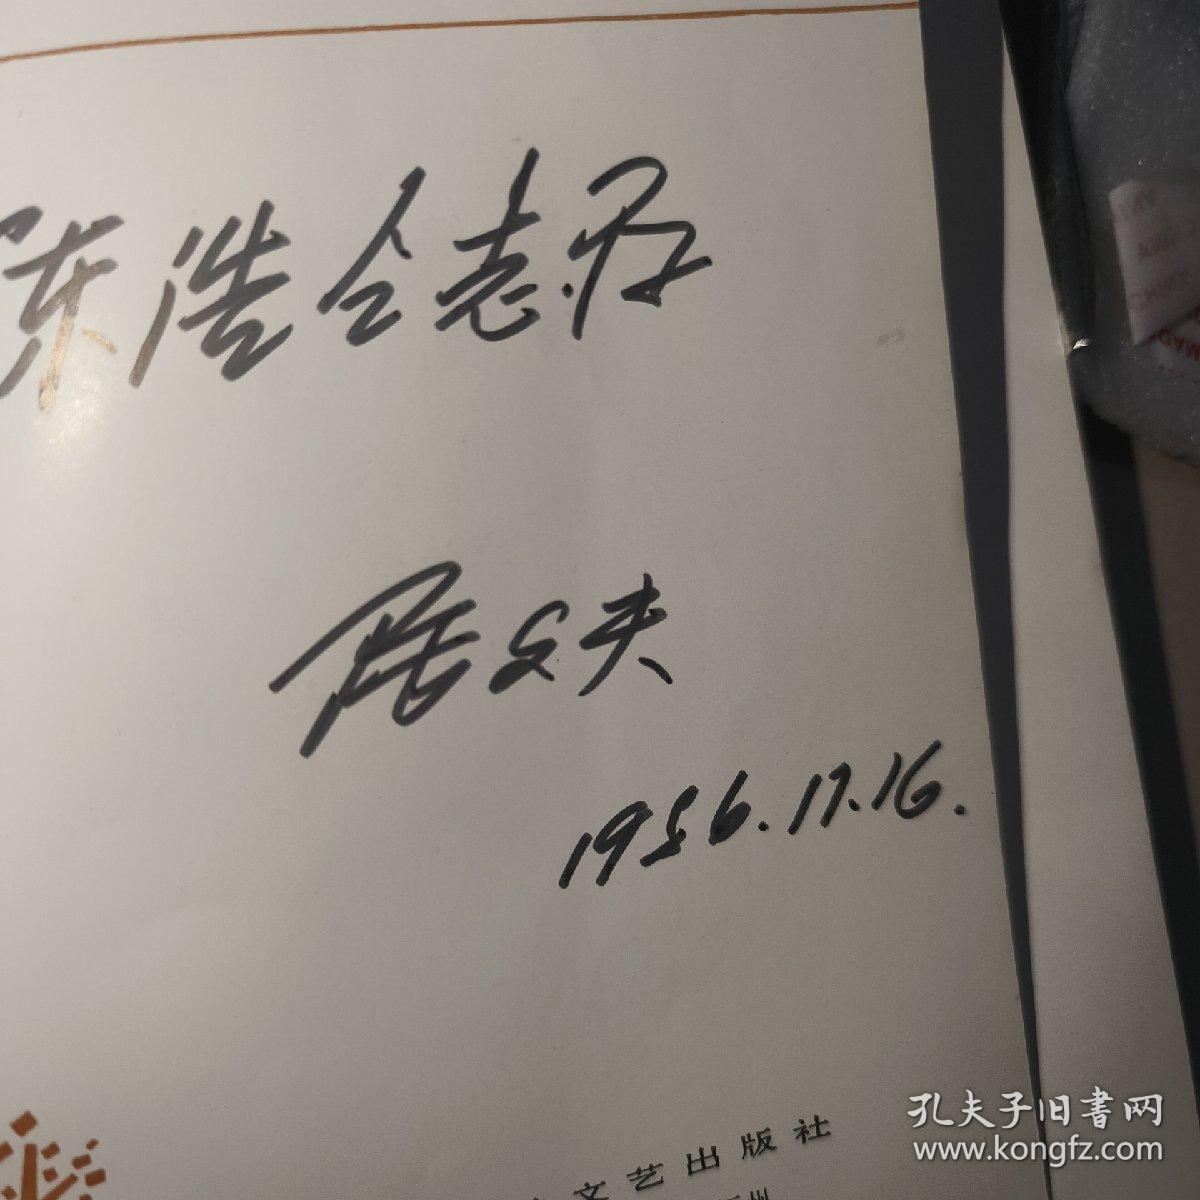 陈浩同志存
居文夫
1956.17.16.
文艺出版社
州
孔夫子旧書网
www.kongfz.com